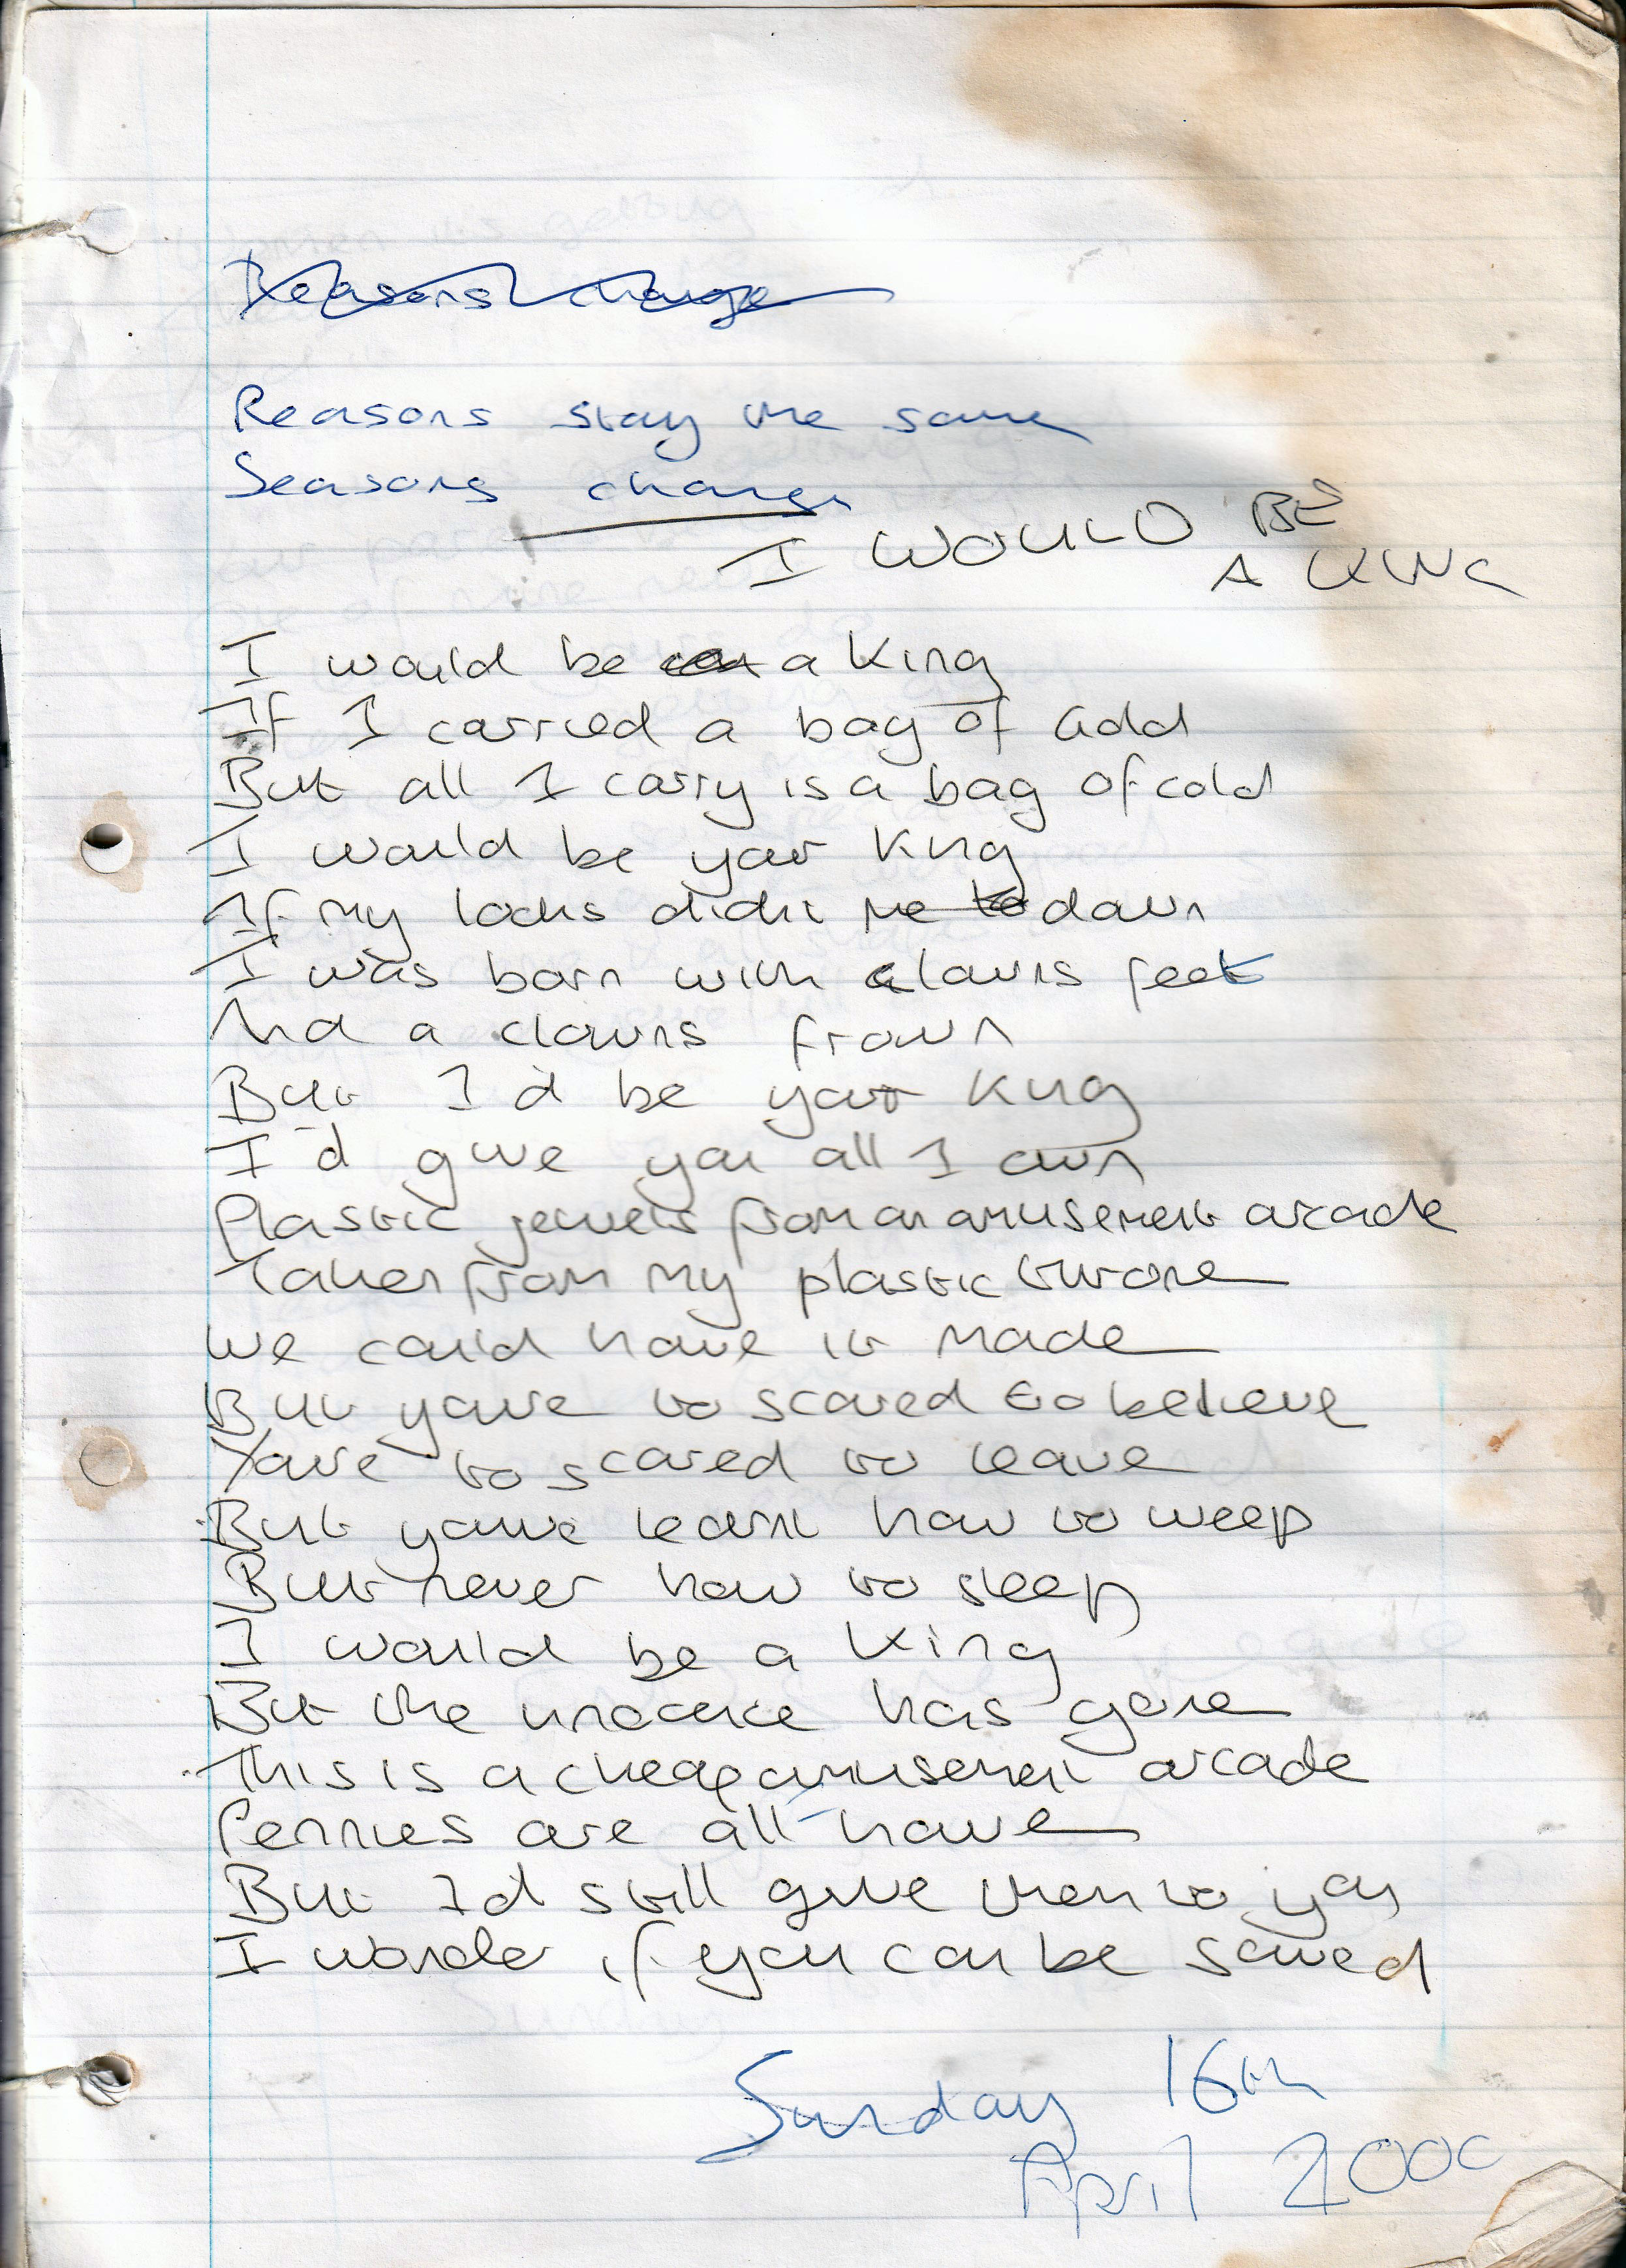 Reasons change
Reasons stay the same
Seasons change
I WOULD BE
A KING
I would be a King
If I carried a bag of Gold
But all I carry is a bag of cold
I would be your King
If my looks didnt me to down
I was born with clowns feet
And a clowns frown
But I'd be your King
I'd give you all I own
Plastic jewels from an amusement arcade
Taken from my plastic throne
We could have it made
But youre to scared to believe
Youre to scared to leave
But youve learnt how to weep
But never how to sleep
I would be a King
But the inocence has gone
This is a cheap amusement arcade
Pennies are all have
But I'd still give them to you
I wonder if you can be saved
Sunday 16th
April 2000